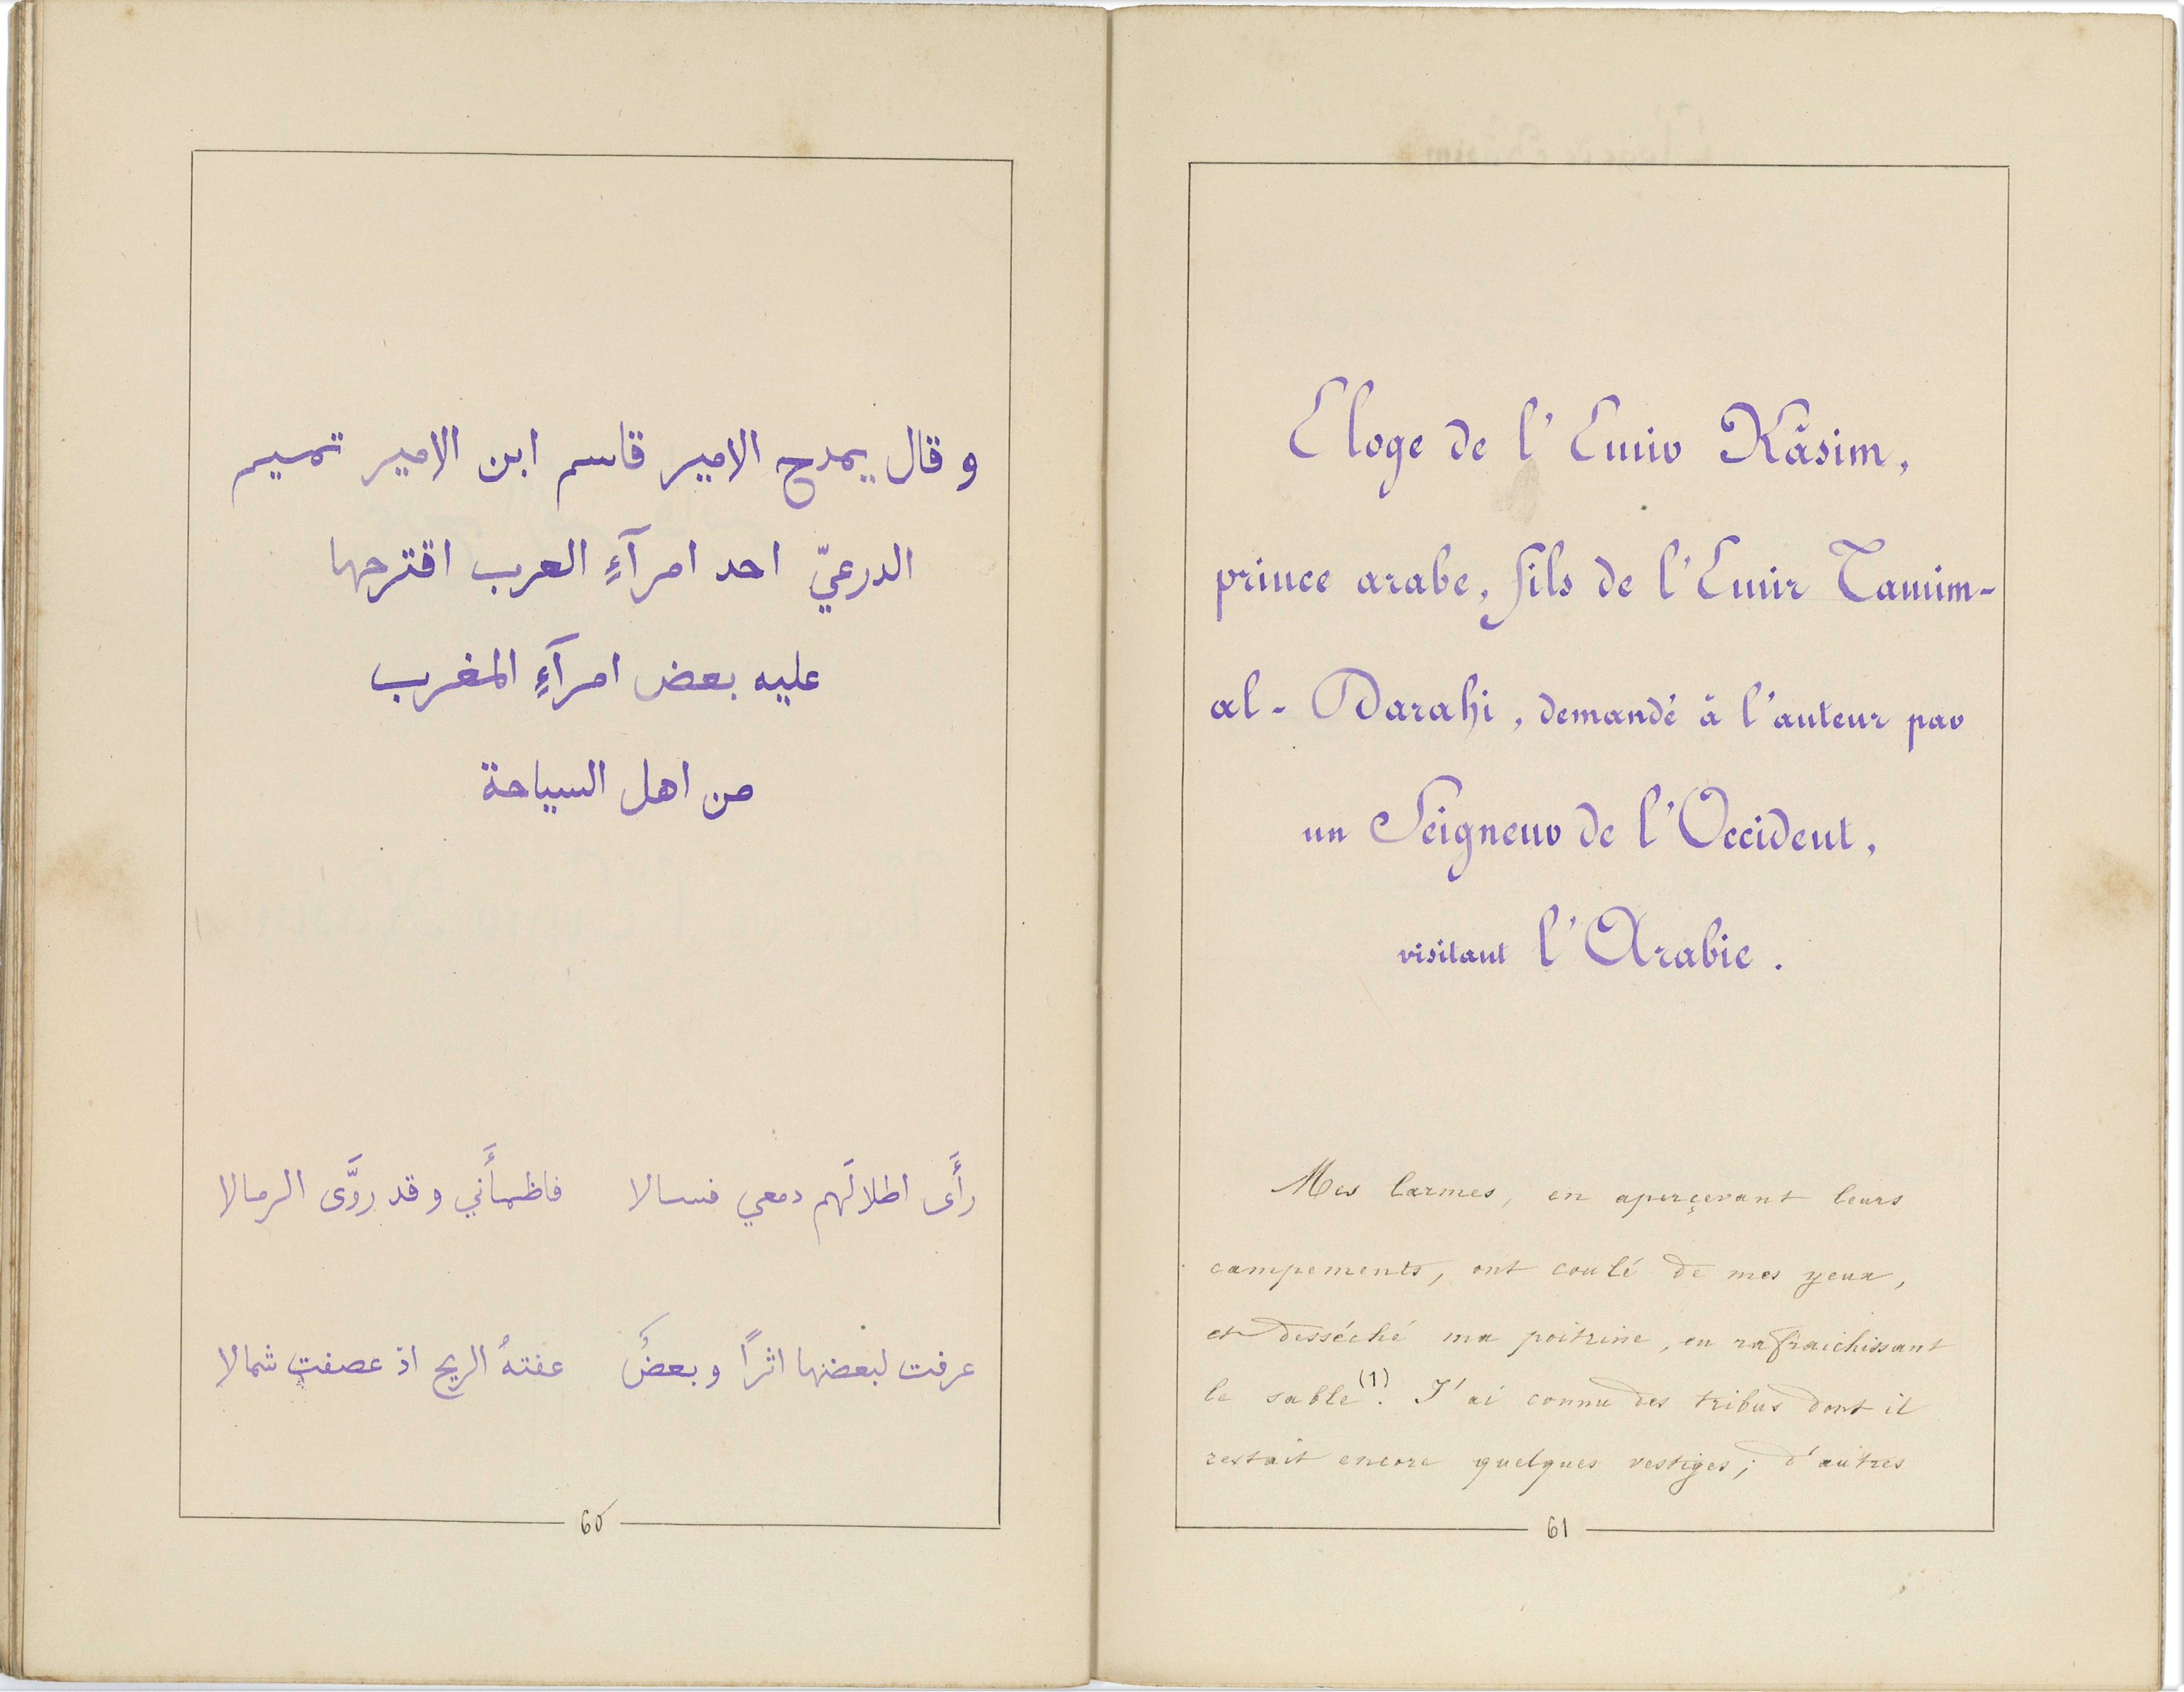 و قال يمدح الامير قاسم ابن الامير تميم
الدرعيّ احد امرآءِ العرب اقترحها
عليه بعض امرآءِ المغرب
من اهل السياحة
رأَى اطلالَهم دمعي فسالا فاظمأَني و قد روَّى الرمالا
عرفت لبعضها اثرًا و بعضٌ عفتهُ الريح اذ عصفت شمالا
60
Eloge de l'Emir Kâsim,
prince arabe, fils de l'Emir Tamim-
al-Darahi, demandé à l'auteur par
un Seigneur de l'Occident,
visitant l'Arabie.
Mes larmes, en aperçevant leurs
campements, ont coulé de mes yeux,
et desséché ma poitrine, en rafraichissant
le sable (1). J'ai connu des tribus dont il
restait encore quelques vestiges; d'autres
61